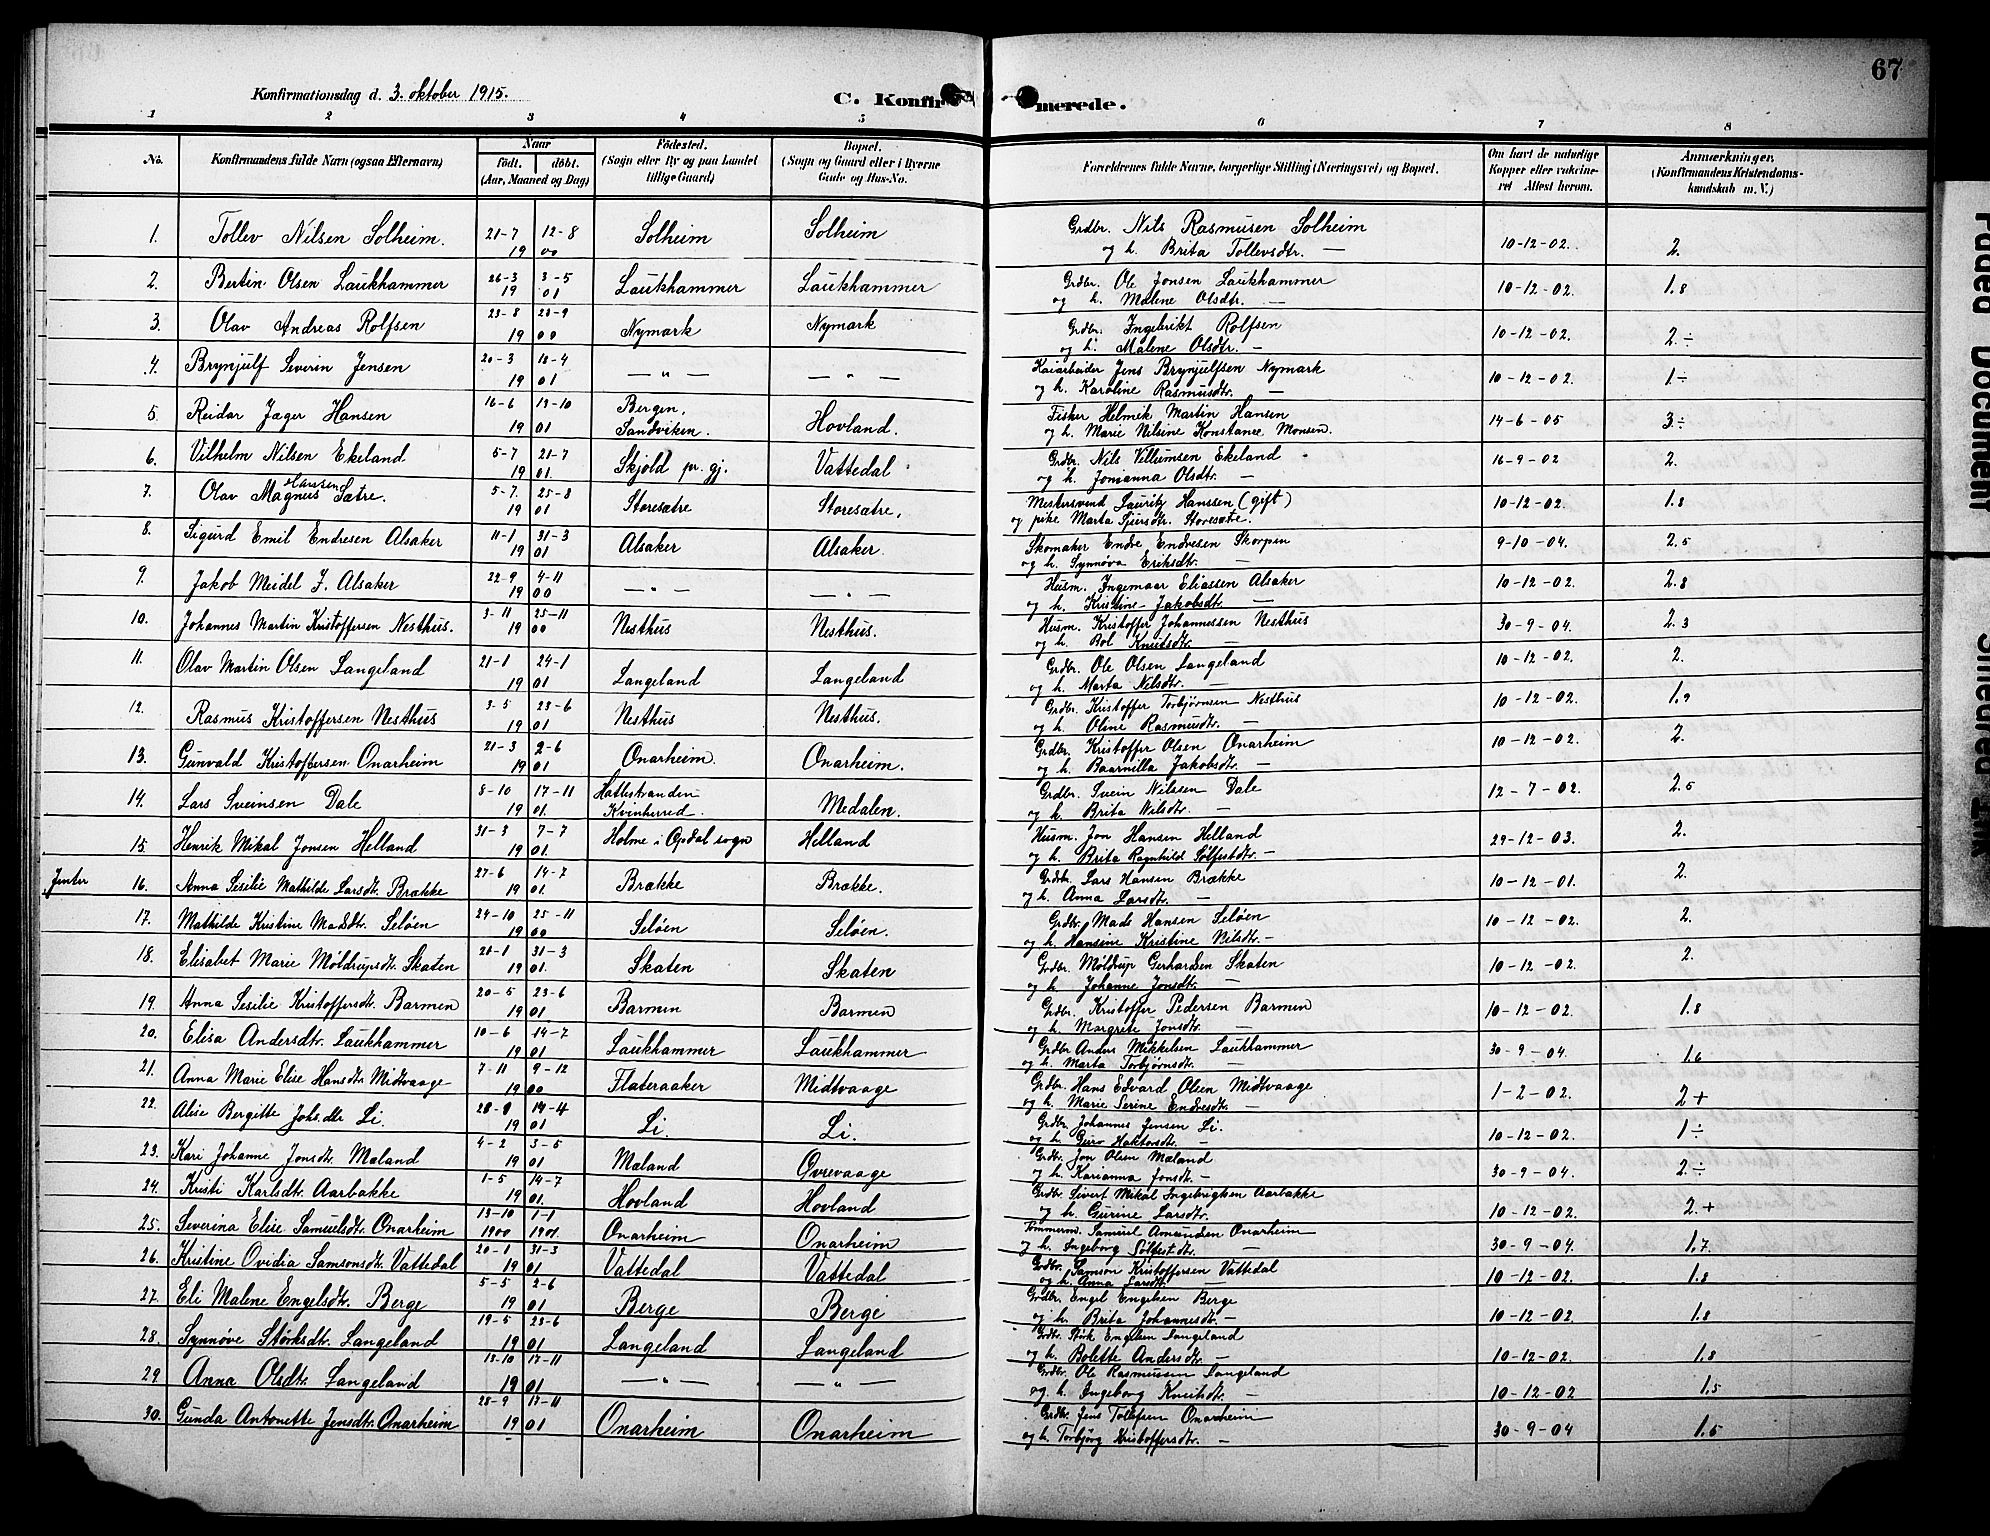 67
Konfirmationsdag d. 3. oktober 1915.
C. Konfirmerede.
1 2 3 4 5 6 7 8
No. Konfirmandens fulde Navn (ogsaa Efternavn) Naar født. døbt. (Aar, Maaned og Dag) Fødested. (Sogn eller By og paa Landet tillige Gaard) Bopæl. (Sogn og Gaard eller i Byerne Gade og Hus-No. Forældrenes fulde Navne, borgerlige Stilling (Næringsvei) og Bopæl. Om havt de naturlige Kopper eller vaccineret. Attest herom. Anmærkninger. (Konfirmandens Kristendomskundskab m. V.)
1. Tollev Nilsen Solheim. 21-7 12-8 1900 Solheim Solheim Grdbr. Nils Rasmusen Solheim og h. Brita Tollevsdtr. — 10-12-02. 2.
2. Bertin Olsen Laukhammer 26-3 3-5 1901 Laukhammer Laukhammer Grdbr. Ole Jonsen Laukhammer og h. Malene Olsdtr. — 10-12-02. 1.8
3. Olav Andreas Rolfsen 1900 Nymark Nymark Grdbr. Ingebrikt Rolfsen og h. Malene Olsdtr. — 10-12-02. 2.÷
4. Brynjulf Severin Jensen 1901 — " — — " — Kaiarbeider Jens Brynjulfsen Nymark og h. Karoline Rasmusdtr. — 10-12-02. 1÷
5. Reidar Jæger Hansen 16-6 13-10 1901 Bergen, Sandviken. Hovland. Fisker Helmik Martin Hansen og h. Marie Nilsine Konstanse Monsen. 14-6-05 3÷
6. Vilhelm Nilsen Ekeland 5-7 21-7 1901 Skjold pr. gj. Vattedal Grdbr. Nils Villumsen Ekeland og h. Jonianna Olsdtr. — 16-9-02 2.
7. Olav Magnus Hansen Sætre. 5-7. 25-8 1901 Storesætre Storesætre. Mestersvend Lauritz Hanssen (gift) og pike Marta Sjursdtr. Storesætre. 10-12-02. 1.8
8. Sigurd Emil Endresen Alsaker 11-1 31-3 1901 Alsaker Alsaker. Skomaker Endre Endresen Skorpen og h. Synnøva Eriksdtr. — 9-10-04. 2.5
9. Jakob Meidel I. Alsaker 22-9 4-11 1900 — " — — " — Husm. Ingemaar Eliassen Alsaker og h. Kristine Jakobsdtr. — 10-12-02. 2.8
10. Johannes Martin Kristoffersen Nesthus. 3-11 25-11 1900 Nesthus Nesthus. Husm. Kristoffer Johannessen Nesthus og h. Bol Knutsdtr. — 30-9-04. 2.3
11. Olav Martin Olsen Langeland 21-1 24-1 1901 Langeland Langeland Grdbr. Ole Olsen Langeland og h. Marta Nilsdtr. — 10-12-02. 2.
12. Rasmus Kristoffersen Nesthus 3-5 23-6 1901 Nesthus Nesthus. Grdbr. Kristoffer Torbjørnsen Nesthus og h. Oline Rasmusdtr. — 10-12-02.
13. Gunvald Kristoffersen Onarheim 21-3 2-6 1901 Onarheim. Onarheim. Grdbr. Kristoffer Olsen Onarheim og h. Baarnilla Jakobsdtr. — 10-12-02. 2.
14. Lars Sveinsen Dale 8-10 17-11 1901 Hattestranden Kvinherred. Medalen. Grdbr. Svein Nilsen Dale og h. Brita Nilsdtr. — 12-7-02. 2.5
15. Henrik Mikal Jonsen Helland 31-3 7-7 1901. Holme i Opdal sogn Helland Husm. Jon Hansen Helland og h. Brita Ragnhild Sølfestdtr. — 29-12-03. 2.
Jenter
16. Anna Sesilie Mathilde Larsdtr. Brække 27-6 14-7 1901. Brække Brække. Grdbr. Lars Hansen Brække og h. Anna Larsdtr. — 10-12-01. 2.
17. Mathilde Kristine Madsdtr. Seløen 24-10 25-11 1900 Seløen Seløen. Grdbr. Mads Hansen Seløen og h. Hansine Kristine Nilsdtr. — 10-12-02. 2.
18. Elisabet Marie Møldrupsdtr. Skaten 31-3 1901. Skaten Skaten Grdbr. Møldrup Gerhardsen Skaten og h. Johanne Jonsdtr. — 10-12-02. 2.
19. Anna Sesilie Kristoffersdtr. Barmen 20-5 23-6 1901 Barmen Barmen Grdbr. Kristoffer Pedersen Barmen og h. Margrete Jonsdtr. — 10-12-02. 1.8
20. Elisa Andersdtr. Laukhammer 10-6 14-7 1901 Laukhammer Laukhammer Grdbr. Anders Mikkelsen Laukhammer og h. Marta Torbjørnsdtr. — 30-9-04. 1.6
21. Anna Marie Elise Hansdtr. Midtvaage 7-11 9-12 1900 Flateraaker Midtvaage Grdbr. Hans Edvard Olsen Midtvaage og h. Marie Serine Endresdtr. — 1-2-02. 2+
22. Alise Bergitte Johs.dtr. Li. 14-4 1901 Li. Li. Grdbr. Johannes Jensen Li. og h. Guro Haktorsdtr. — 10-12-02. 1÷
23. Kari Johanne Jonsdtr. Mæland 4-2 3-5 1901 Mæland Øvrevaage Grdbr. Jon Olsen Mæland og h. Karianna Jonsdtr. — 30-9-04. 2÷
24. Kristi Karlsdtr. Aarbakke 1-5 14-7 1901. Hovland Hovland Grdbr. Sivert Mikal Ingebrigtsen Aarbakke og h. Gurine Larsdtr. 10-12-02. 2.+
25. Severina Elise Samuelsdtr. Onarheim 13-10 1-1 1900 1901. Onarheim Onarheim Tømmerm. Samuel Amundsen Onarheim og h. Ingeborg Sølfestdtr. — 30-9-04. 1.7
26. Kristine Ovidia Samsonsdtr. Vattedal 20-1 31-3 1901 Vattedal Vattedal Grdbr. Samson Kristoffersen Vattedal og h. Anna Larsdtr. — 10-12-02. 1.8
27. Eli Malene Engelsdtr. Berge 5-5 2-6 1901 Berge Berge Grdbr. Engel Engelsen Berge og h. Brita Johannesdtr. — 10-12-02. 1.8
28. Synnøve Størksdtr. Langeland 19-5 23-6 1901 Langeland Langeland Grdbr. Størk Engelsen Langeland og h. Bolette Andersdtr. — 10-12-02. 1.8
29. Anna Olsdtr. Langeland 13-10 17-11 1901 — " — — " — Grdbr. Ole Rasmussen Langeland og h. Ingeborg Knutsdtr. — 10-12-02 1.5
30. Gunda Antonette Jensdtr. Onarheim 17-11 1901 Onarheim Onarheim Grdbr. Jens Tollefsen Onarheim og h. Torbjørg Kristoffersdtr. — 30-9-04 1.5
Faded Document
Smeared Ink